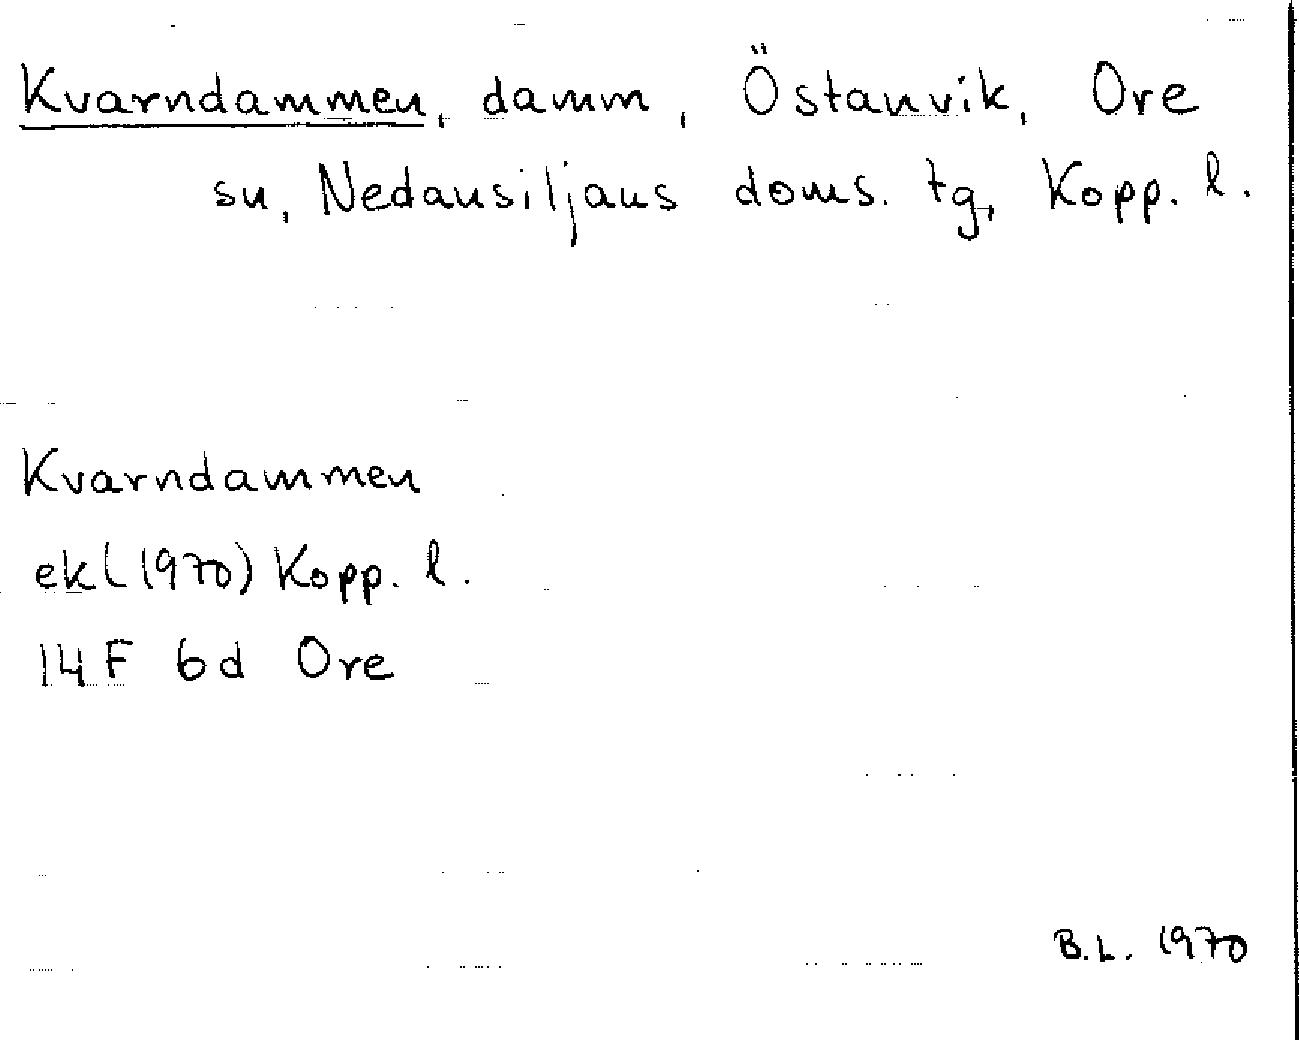 Kvarndammen, damm, Östanvik, Ore
sn, Nedansiljans doms. tg, Kopp. l.
Kvarndammen
ekl (1970) Kopp. l.
14 F 6d Ore
B.L. 1970